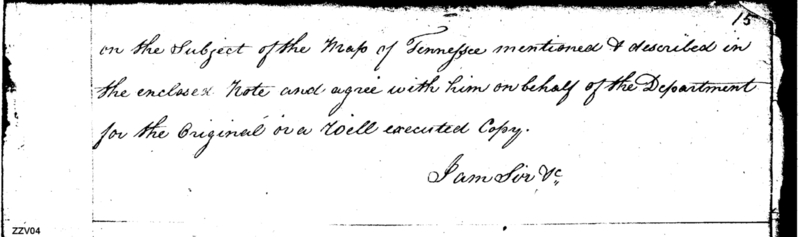 15
on the Subject of the Map of Tennessee mentioned & described in
the enclosed Note and agree with him on behalf of the Department
for the Original or a Well executed Copy.
I am Sir &c
ZZV04